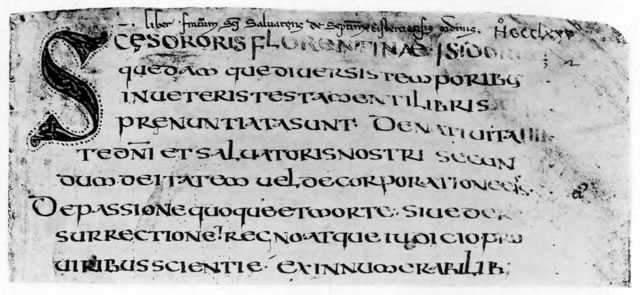 liber fratrum Sci Salvatoris de Septimo cisterciensis ordinis.
SCĘ SORORIS FLORENTINAE ISIDORI
quedam que diversis temporibus
in veteris testamenti libris
prenuntiata sunt. De nativita
te dñi et salvatoris nostri secun
dum deitatem vel de corporatione
De passione quoque et morte. sive de re
surrectione. regno. atque iudicio pro
viribus scientie. ex innumerabilib;